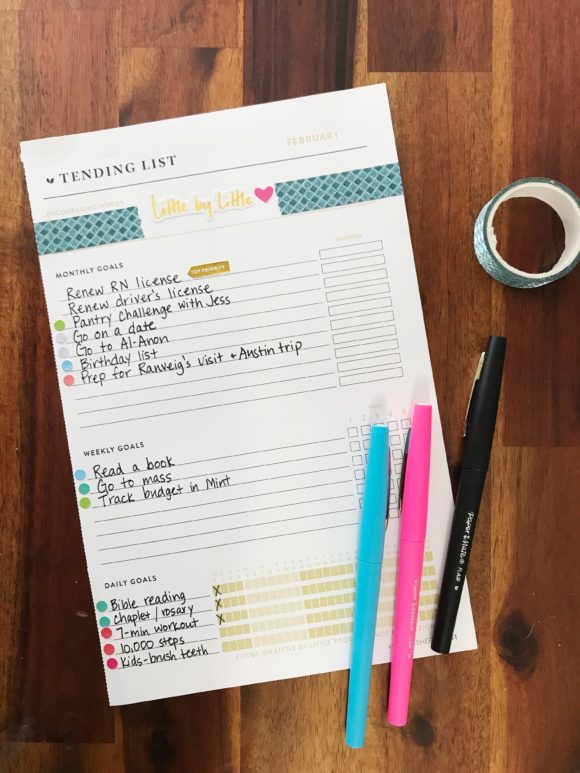 FEBRUARY
TENDING LIST
ENCOURAGING WORDS
little by little
MONTHLY GOALS
PROGRESS
Renew RN license TOP PRIORITY
Renew driver's license
Pantry challenge with Jess
Go on a date
Go to Al-Anon
Birthday list
Prep for Ranveig's visit + Austin trip
WEEK
WEEKLY GOALS
1 2 3 4 5
Read a book
Go to mass
Track budget in Mint
DAILY GOALS
Bible reading X
Chaplet / rosary X
7-min workout X
10,000 steps
Kids-brush teeth
FOCUS ON LITTLE BY LITTLE